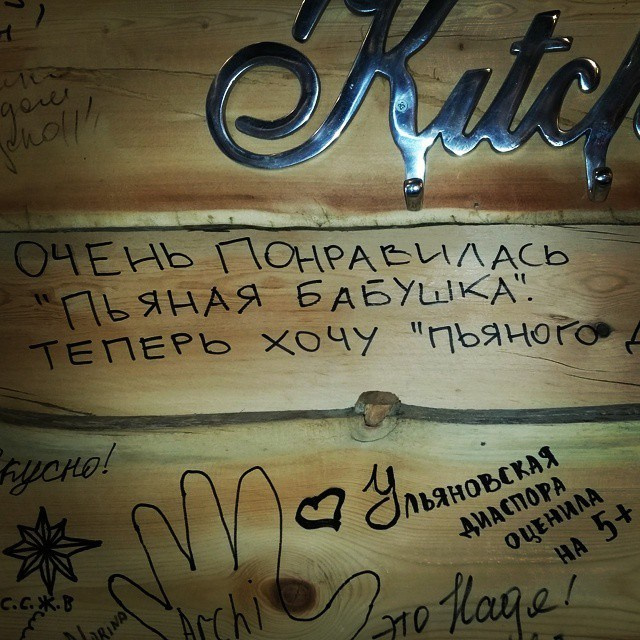 Kitch
ОЧЕНЬ ПОНРАВИЛАСЬ
"ПЬЯНАЯ БАБУШКА".
ТЕПЕРЬ ХОЧУ "ПЬЯНОГО Д
Вкусно!
Ульяновская
диаспора
оценила
на 5+
С.С.Ж.В
Marina
Archi
это Надя!